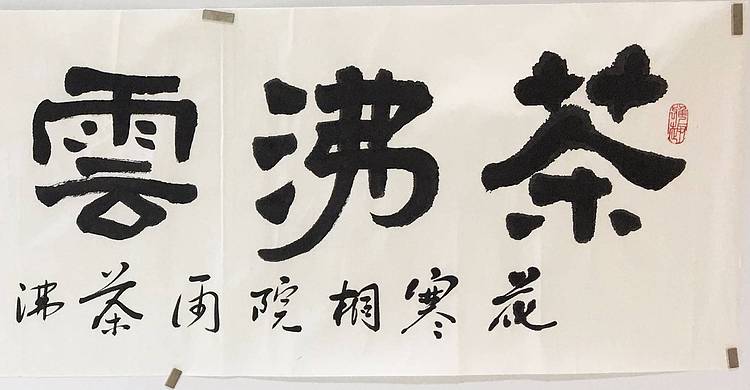 茶沸雲
花寒桐院雨茶沸